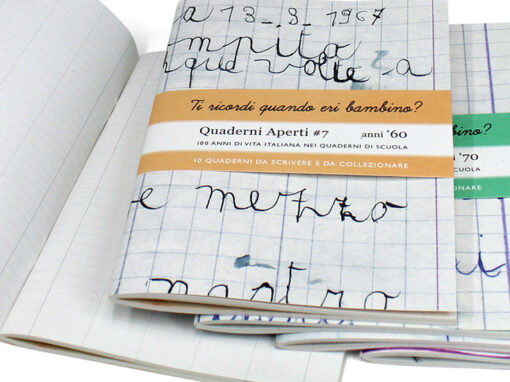 a 13-8-1967
mpito
que volte a
Ti ricordi quando eri bambino?
Quaderni Aperti #7 anni '60
100 ANNI DI VITA ITALIANA NEI QUADERNI DI SCUOLA
10 QUADERNI DA SCRIVERE E DA COLLEZIONARE
e mezzo
nostro
mbino?
'70
SCUOLA
ZIONARE
i